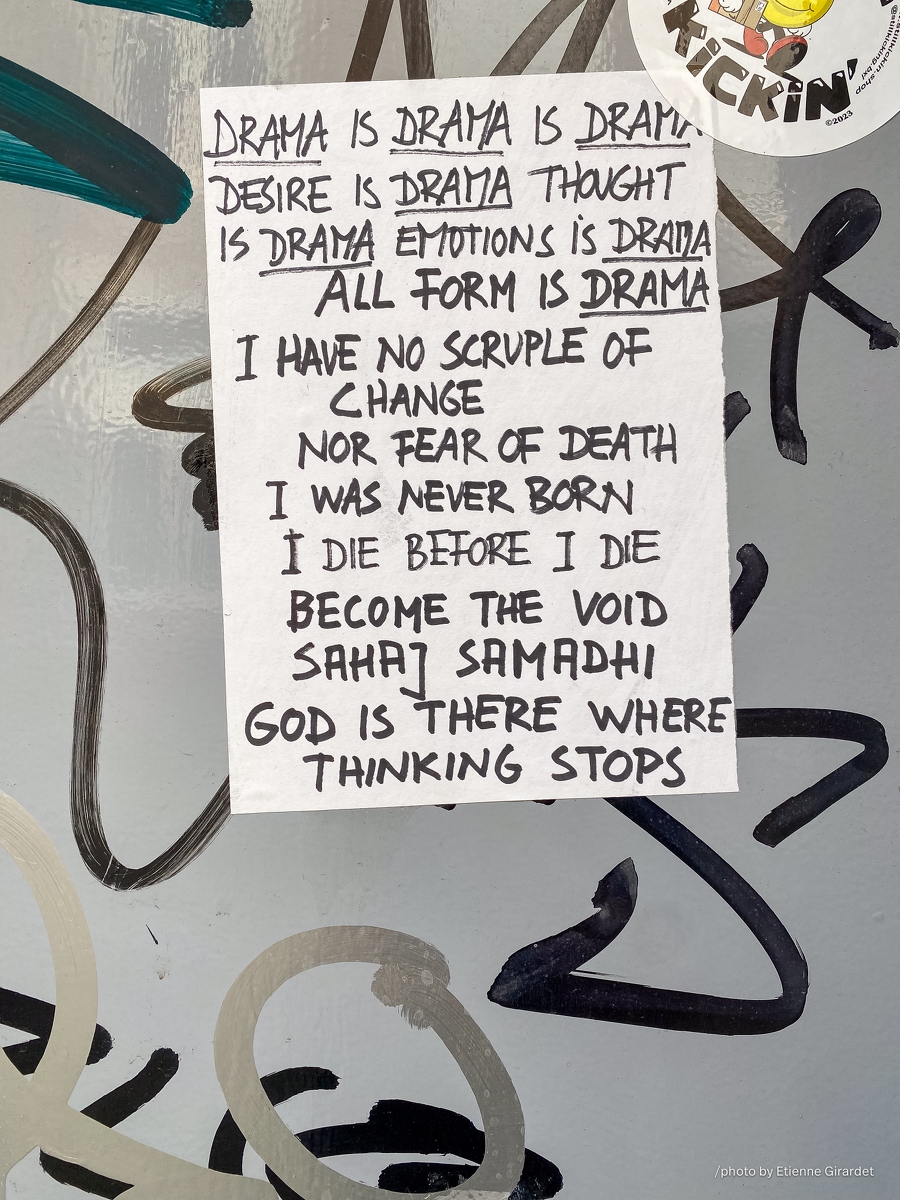 KICKIN'
©2023
DRAMA IS DRAMA IS DRAMA
DESIRE IS DRAMA THOUGHT
IS DRAMA EMOTIONS iS DRAMA
ALL FORM IS DRAMA
I HAVE NO SCRUPLE OF
CHANGE
NOR FEAR OF DEATH
I WAS NEVER BORN
I DIE BEFORE I DIE
BECOME THE VOID
SAHAJ SAMADHI
GOD IS THERE WHERE
THINKING STOPS
/photo by Etienne Girardet